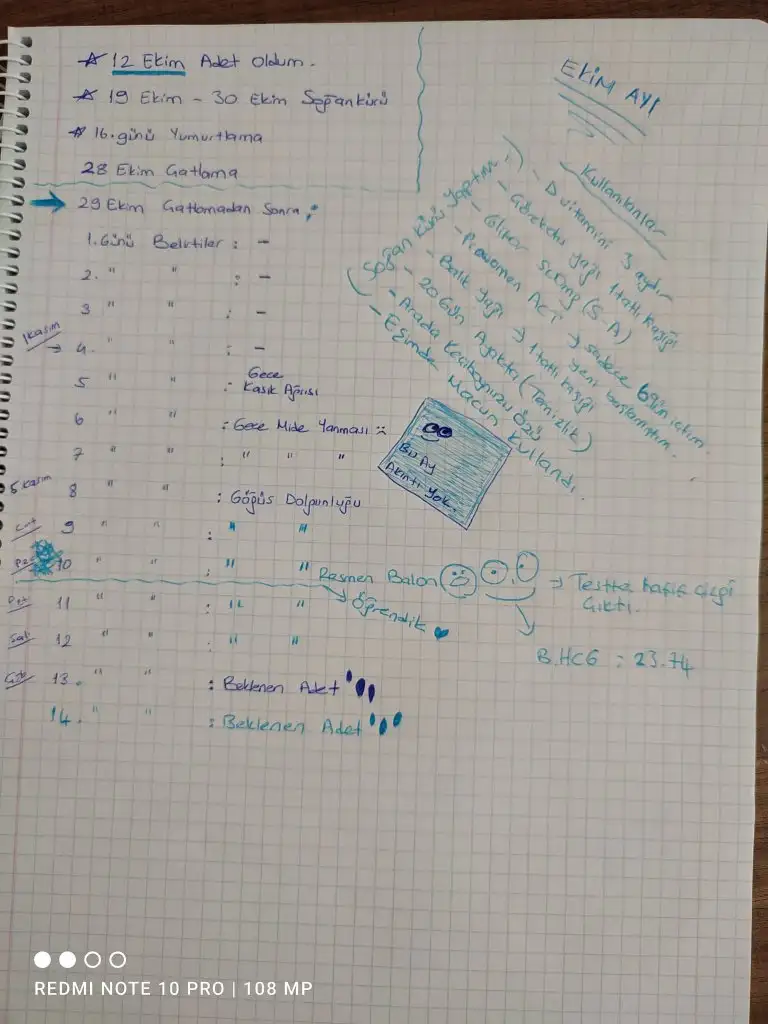 ☆ 12 Ekim Adet Oldum.
☆ 19 Ekim - 30 Ekim Soğan kürü
☆ 16. günü Yumurtlama
28 Ekim Çatlama
→ 29 Ekim Çatlamadan Sonra;
1. Günü Belirtiler : -
2. " " : -
3 " " : -
1 Kasım → 4. " " : -
5 " " : Gece Kasık Ağrısı
6 " " : Gece Mide Yanması :(
7 " " : " " "
5 Kasım 8 " " : Göğüs Dolgunluğu
Cmt 9 " " : " "
Pz 10 " " : " " Resmen Balon
→ Testte hafif çizgi
Çıktı.
Pzt 11 " " : " " → Öğrendik ♥
B.HCG : 23.74
Salı 12 " " : " "
13. " " : Beklenen Adet
14. " " : Beklenen Adet
EKİM AYI
Kullanılanlar
- D vitamini 3 aydır
- Çörekotu yağı 1 tatlı kaşığı
- Glifor 500mg (S-A)
- Prowomen ACT → sadece 6 gün içtim. yeni başlamıştım.
- Balık yağı → 1 tatlı kaşığı
- 20 Gün Ayaktaı (Temizlik)
- Arada Keçiboynuzu Özü
- Eşimde Macun Kullandı.
(Soğan Kürü Yaptım.)
Bu Ay
Akıntı Yok.
REDMI NOTE 10 PRO | 108 MP